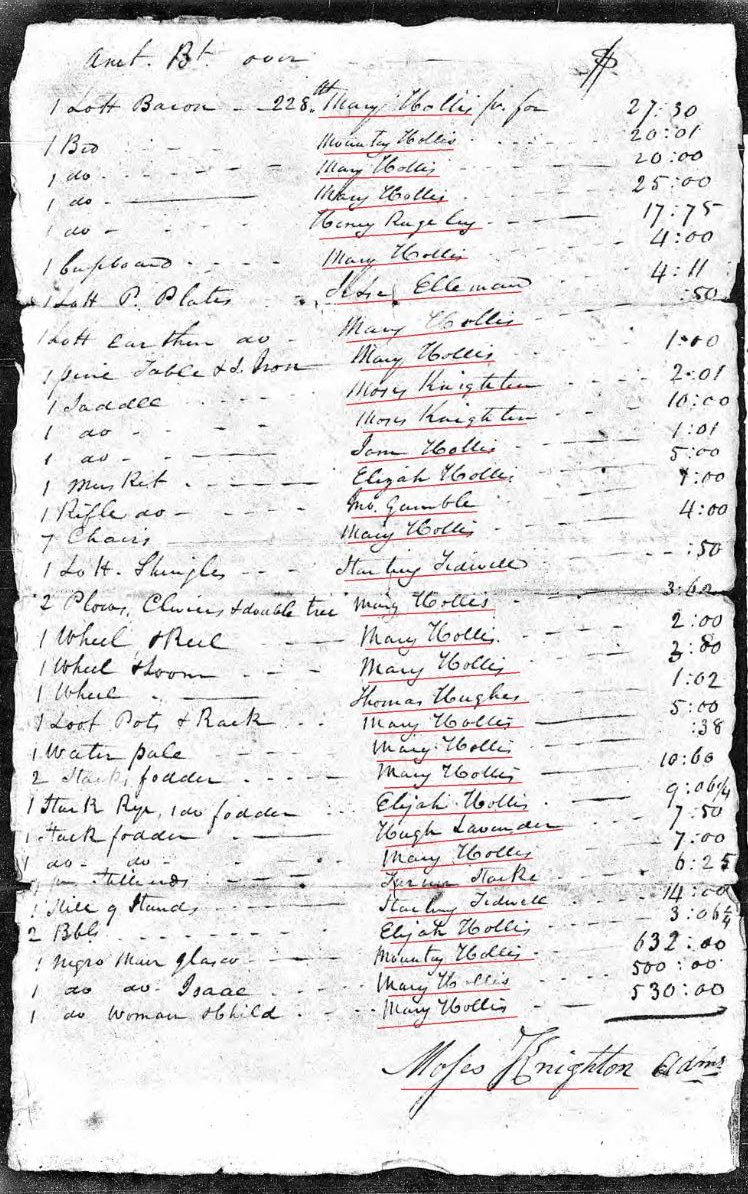 Amt. Bt. over $
1 Lott Bacon 228 lb Mary Hollis pr. for 27:30
1 Bed Mountay Hollis 20:01
1 do Mary Hollis 20:00
1 do Mary Hollis 25:00
1 do Henry Rugeley 17:75
1 Cupboard Mary Hollis 4:00
1 Lott P. Plates Elleman 4:11
1 Lott Earthen do Mary Hollis :50
1 pine Table & S. Iron Mary Hollis 1:00
1 Saddle Moses Knighten 2:01
1 do Moses Knighten 10:00
1 do Jam Hollis 1:01
1 Musket Elijah Hollis 5:00
1 Rifle do Jno. Gamble 7:00
7 Chairs Mary Hollis 4:00
1 Lott Shingles Starling Tidwell :50
2 Plows, Clevises & double tree Mary Hollis 3:62
1 Wheel & Reel Mary Hollis 2:00
1 Wheel & Loom Mary Hollis 3:00
1 Wheel Thomas Hughes 1:02
1 Loot Pots & Rack Mary Hollis 5:00
1 Water pale Mary Hollis :38
2 Stack, fodder Mary Hollis 10:60
1 Stack Rye, 1 do fodder Elijah Hollis 9:06¼
1 Stack fodder Hugh Lavender 7:50
1 do do Mary Hollis 7:00
1 Starke 6:25
1 Still & Stands Starling Tidwell 14:00
2 Bbls Elijah Hollis 3:06¼
1 Negro Man Glasco Mountay Hollis 632:00
1 do do Isaac Mary Hollis 500:00
1 do Woman & Child Mary Hollis 530:00
Moses Knighton Admr